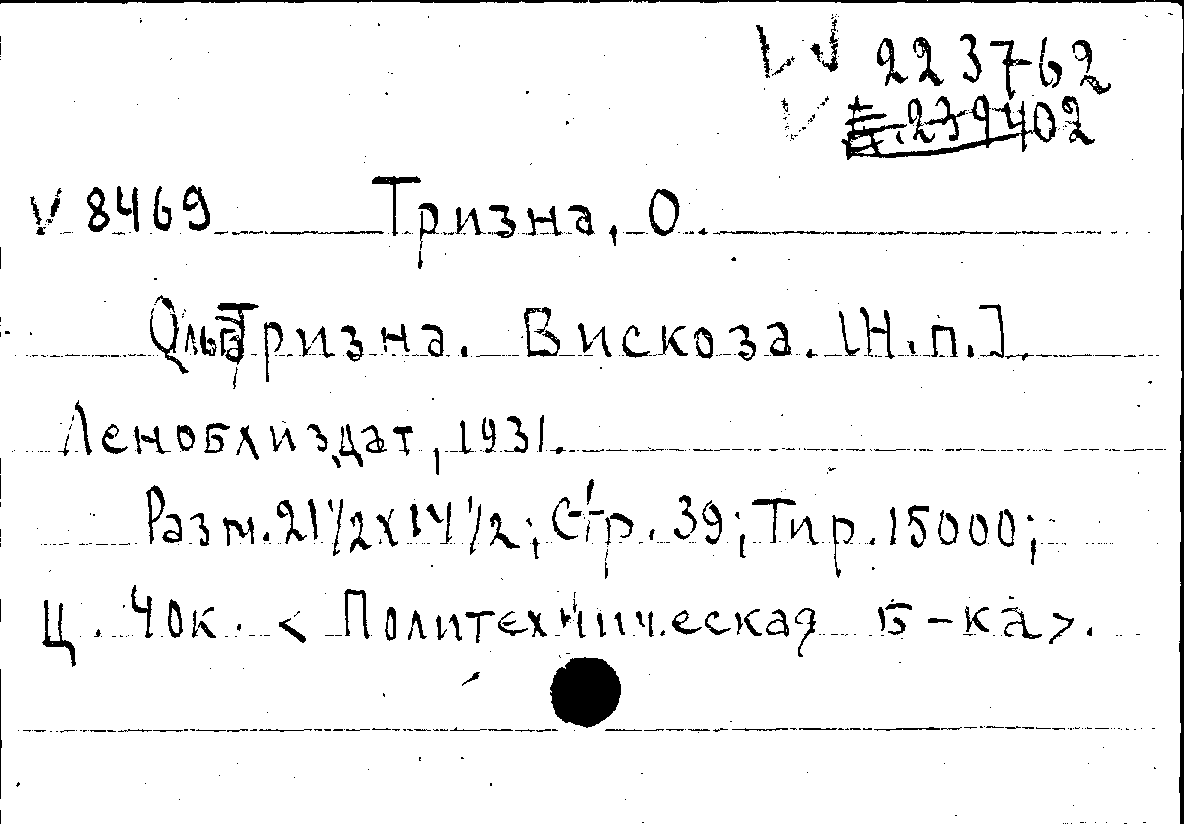 223762
E.239402
V 8469 Тризна, О.
Ольга Тризна. Вискоза. [Н.п.].
Леноблиздат, 1931.
Разм. 21 1/2 x 14 1/2; Стр. 39; Тир. 15000;
Ц. 40к. < Политехническая Б-ка >.